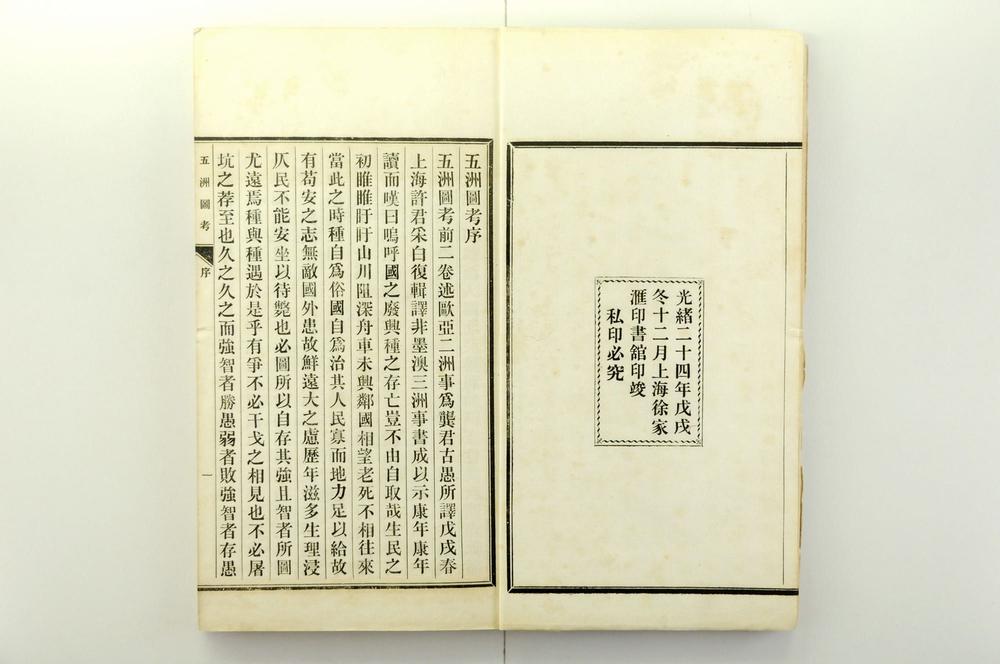 光緒二十四年戊戌
冬十二月上海徐家
滙印書館印竣
私印必究
五洲圖考序
五洲圖考前二卷述歐亞二洲事爲龔君古愚所譯戊戌春
上海許君采白復輯譯非墨澳三洲事書成以示康年康年
讀而嘆曰嗚呼國之廢興種之存亡豈不由自取哉生民之
初睢睢盱盱山川阻深舟車未興鄰國相望老死不相往來
當此之時種自爲俗國自爲治其人民寡而地力足以給故
有苟安之志無敵國外患故鮮遠大之慮歷年滋多生理浸
仄民不能安坐以待斃也必圖所以自存其強且智者所圖
尤遠焉種與種遇於是乎有爭不必干戈之相見也不必屠
坑之荐至也久之久之而強智者勝愚弱者敗強智者存愚
五洲圖考
序
一